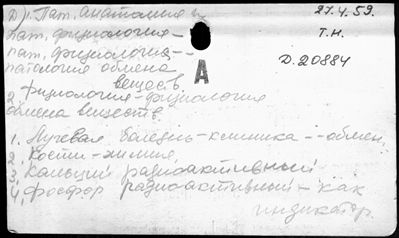 Д 1. Пат. анатомия и
27.4.59.
пат. физиология –
Т.Н.
пат. физиология –
Д. 20884
патология обмена
веществ
А
2. Физиология – физиология
обмена веществ.
1. Лучевая болезнь – клиника – обмен.
2. Кости – химия.
3. Кальций радиоактивный
4. Фосфор радиоактивный – как
индикатор.